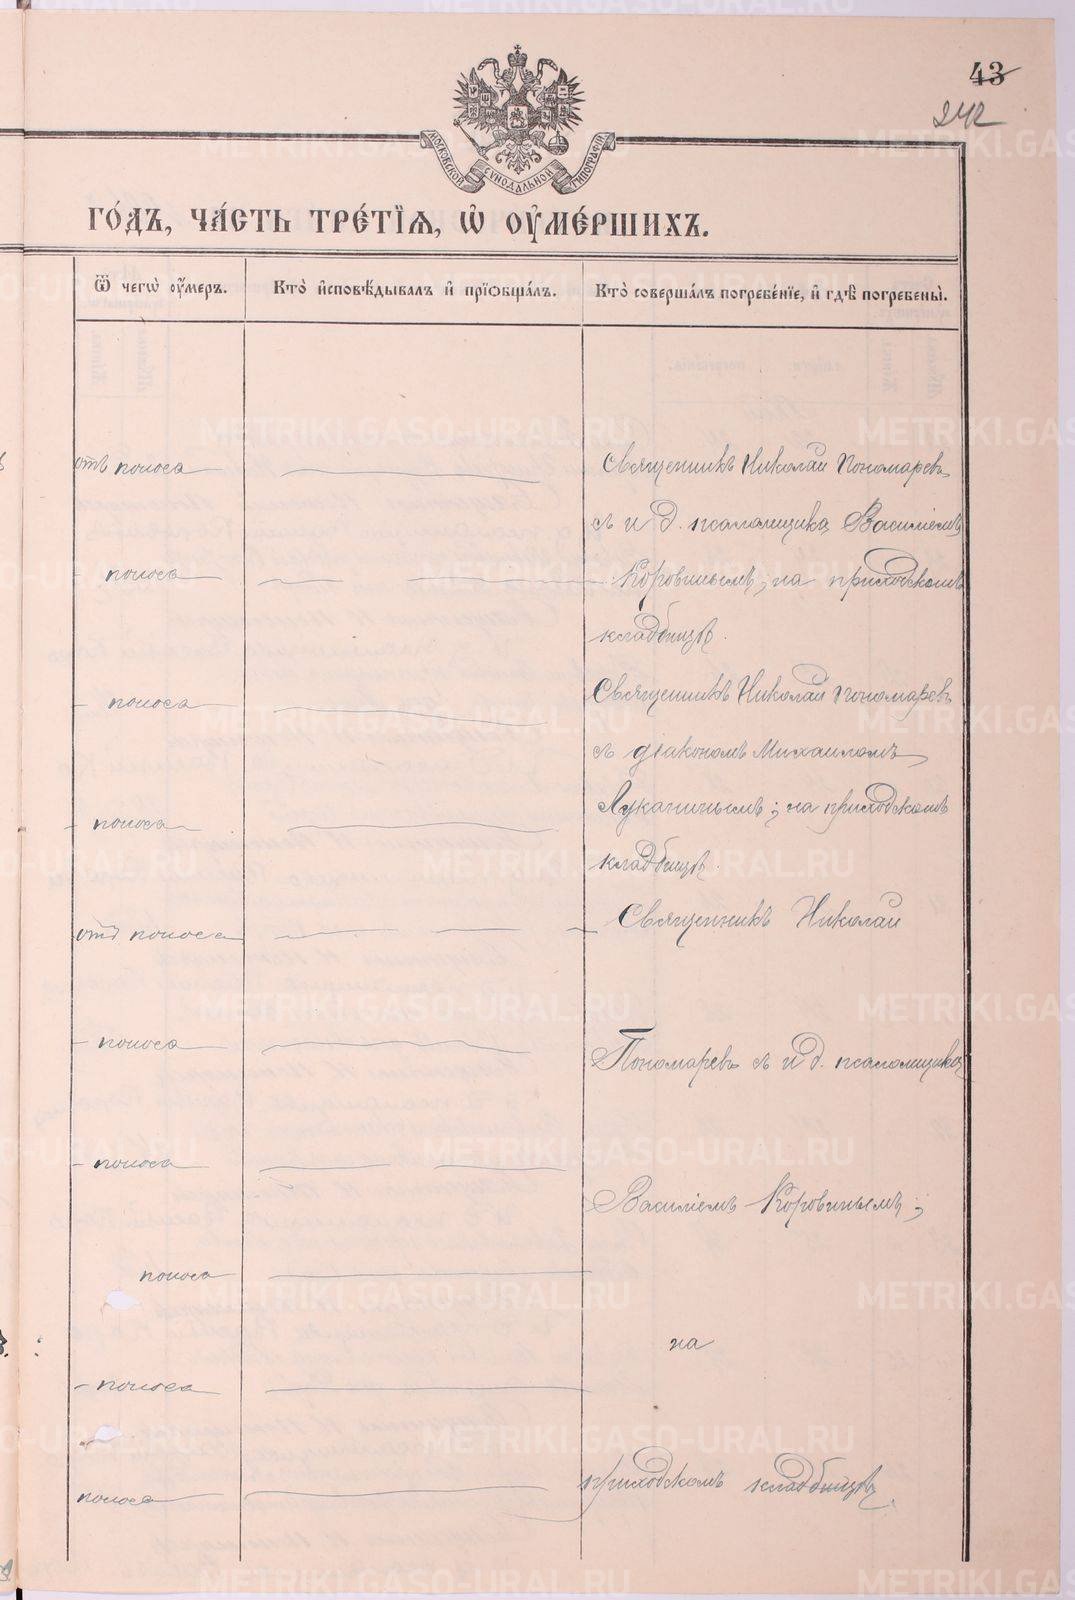 43
242
МОСКОВСКОЙ СѴНОДАЛЬНОЙ ТИПОГРАФІИ
ГО́ДЪ, ЧА́СТЬ ТРЕ́ТІЯ, Ѡ҆ ОУ҆МЕ́РШИХЪ.
Ѿ чегѡ̀ оу҆́меръ.
Кто̀ и҆сповѣ́дывалъ и҆ прїѻбща́лъ.
Кто̀ соверша́лъ погребе́нїе, и҆ гдѣ̀ погребены̀.
отъ поноса
Священникъ Николай Пономаревъ
съ и д. псаломщика Василіемъ
- поноса
Коровинымъ; на приходскомъ
кладбищѣ.
- поноса
Священникъ Николай Пономаревъ
съ діакономъ Михаиломъ
- поноса
Луканинымъ; на приходскомъ
кладбищѣ.
отъ поноса
Священникъ Николай
- поноса
Пономаревъ съ и д. псаломщика
- поноса
Василіемъ Коровинымъ;
поноса
на
- поноса
поноса
приходскомъ кладбищѣ.
METRIKI.GASO-URAL.RU